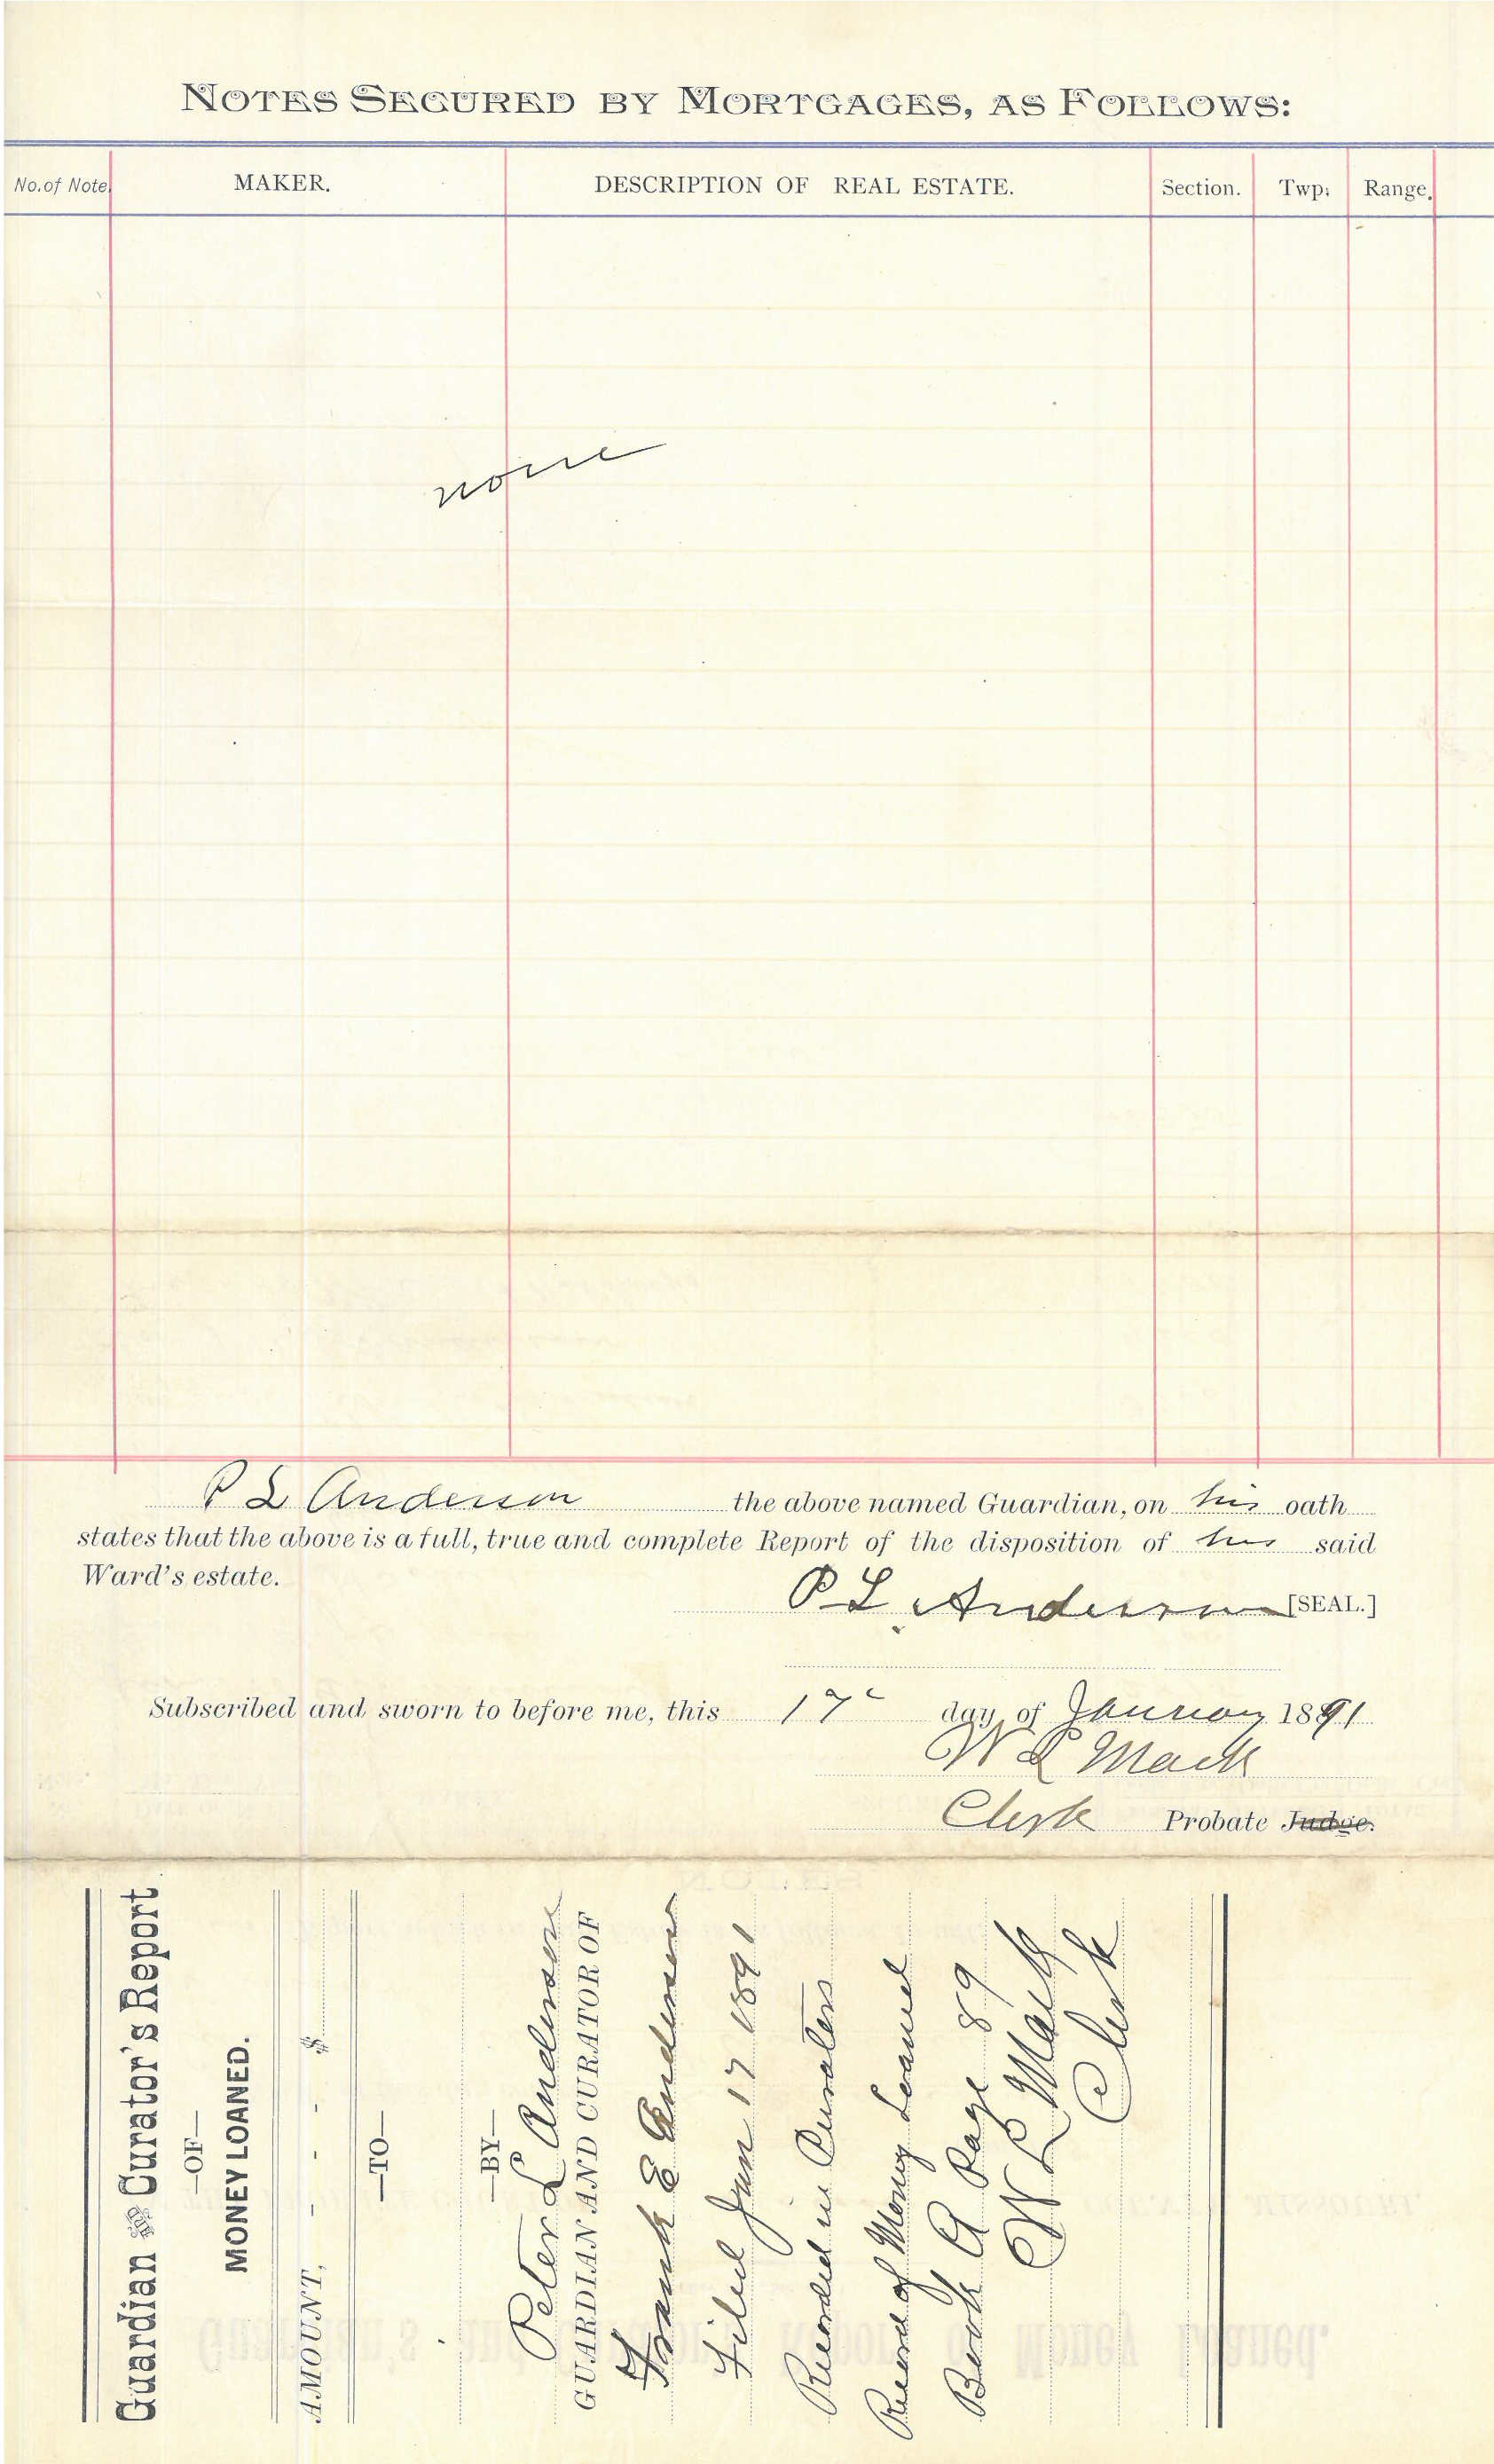 NOTES SECURED BY MORTGAGES, AS FOLLOWS:
No. of Note. MAKER. DESCRIPTION OF REAL ESTATE. Section. Twp. Range.
none
P L Anderson the above named Guardian, on his oath
states that the above is a full, true and complete Report of the disposition of his said
Ward's estate.
P L Anderson [SEAL.]
Subscribed and sworn to before me, this 17 day of January 1891
W L Mack
Clerk Probate Judge.
Guardian & Curator's Report
—OF—
MONEY LOANED.
AMOUNT, - - - $
—TO—
—BY—
Peter L Anderson
GUARDIAN AND CURATOR OF
Frank E Anderson
Filed Jan 17 1891
Recorded in Curators
Record of Money Loaned
Book A Page 89
W L Mack
Clerk